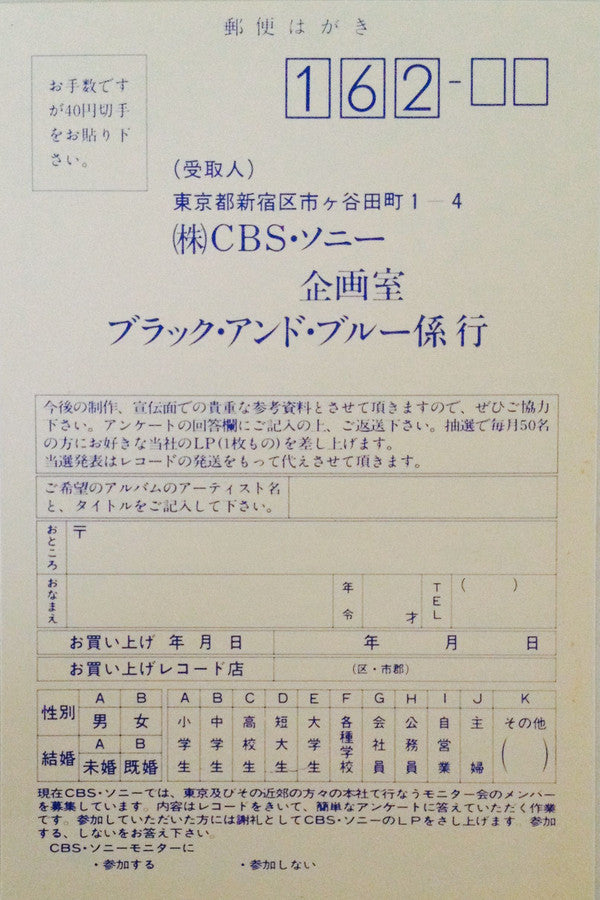 郵便はがき
お手数です
が40円切手
をお貼り下
さい。
162-
(受取人)
東京都新宿区市ヶ谷田町1-4
(株)CBS・ソニー
企画室
ブラック・アンド・ブルー係 行
今後の制作、宣伝面での貴重な参考資料とさせて頂きますので、ぜひご協力
下さい。アンケートの回答欄にご記入の上、ご返送下さい。抽選で毎月50名
の方にお好きな当社のLP(1枚もの)を差し上げます。
当選発表はレコードの発送をもって代えさせて頂きます。
ご希望のアルバムのアーティスト名
と、タイトルをご記入して下さい。
おところ 〒
おなまえ 年令 才 TEL ( )
お買い上げ 年 月 日 年 月 日
お買い上げレコード店 (区・市郡)
性別 A 男 B 女
結婚 A 未婚 B 既婚
A 小学生 B 中学生 C 高校生 D 短大生 E 大学生 F 各種学校 G 会社員 H 公務員 I 自営業 J 主婦 K その他 ( )
現在CBS・ソニーでは、東京及びその近郊の方々の本社で行なうモニター会のメンバー
を募集しています。内容はレコードをきいて、簡単なアンケートに答えていただく作業
です。参加していただいた方には謝礼としてCBS・ソニーのLPをさし上げます。参加
する、しないをお答え下さい。
CBS・ソニーモニターに
・参加する ・参加しない